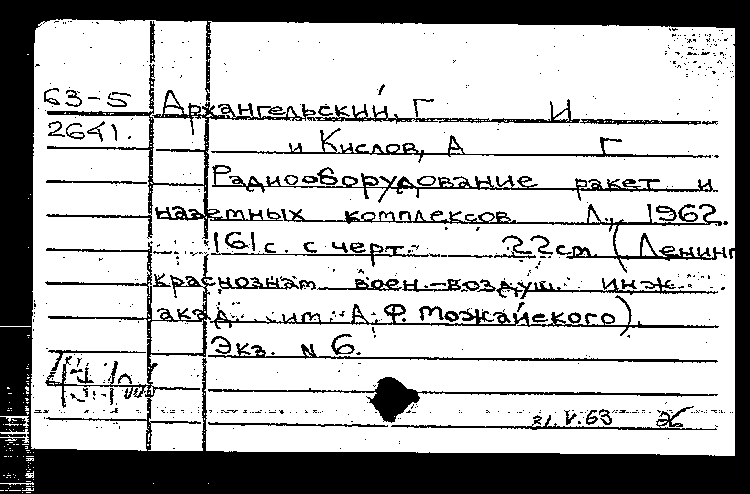 63-5 Архангельский, Г И
2641. и Кислов, А Г
Радиооборудование ракет и
наземных комплексов. Л., 1962.
161 с. с черт. 22 cm. (Ленинг
краснознам воен.-воздуш. инж.
акад. им. А. Ф. Можайского).
Экз. N 6.
31.V.63